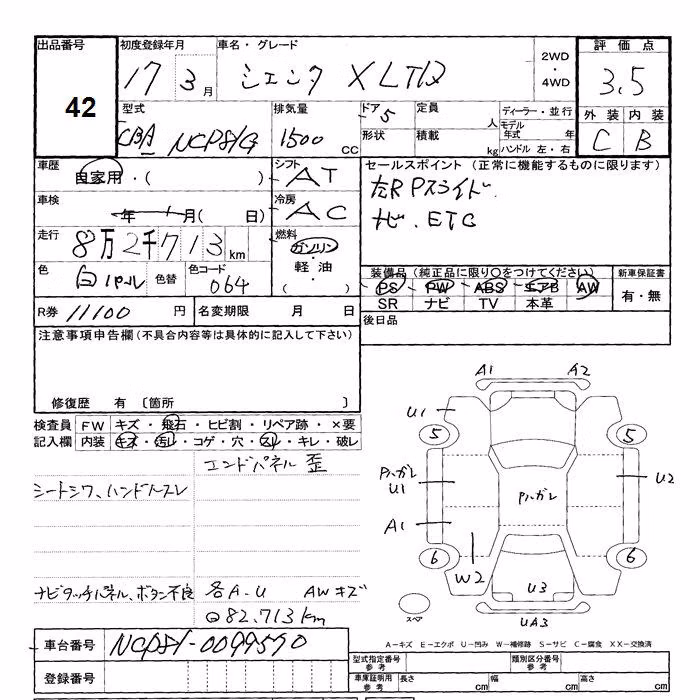 出品番号 初度登録年月 車名・グレード 2WD ・ 4WD 評価点
42 17 3月 シエンタ XLTD 3.5
型式 排気量 ドア 5 定員 人 ディーラー・並行 外装 内装
CBA NCP81G 1500 CC 形状 積載 kg モデル年式 年 ハンドル 左・右 C B
車歴 自家用・( ) シフト AT セールスポイント (正常に機能するものに限ります)
車検 年 月( 日) 冷房 AC 左R Pスライド.
走行 8万2千713km 燃料 ガソリン・軽油・( ) ナビ. ETC
色 白パール 色替 色コード 064 装備品 (純正品に限り○をつけてください) 新車保証書
PS PW ABS エアB AW 有・無
SR ナビ TV 本革
R券 11100 円 名変期限 月 日 後日品
注意事項申告欄(不具合内容等は具体的に記入して下さい)
修復歴 有 〔箇所 〕
検査員記入欄 FW キズ・飛石・ヒビ割・リペア跡・×要
内装 キズ・汚レ・コゲ・穴・スレ・キレ・破レ
エンドパネル 歪
シートシワ、ハンドルスレ
ナビタッチパネル、ボタン不良 各A-U AWキズ
82.713km
A1 A2
U1
5 5
Pハガレ U1 Pハガレ U2
A1
6 W2 6
U3
スペア UA3
A-キズ E-エクボ U-凹み W-補修跡 S-サビ C-腐食 XX-交換済
車台番号 NCP81-0099590
登録番号
型式指定番号 参考 類別区分番号 参考
車庫証明用 参考 長さ cm 幅 cm 高さ cm